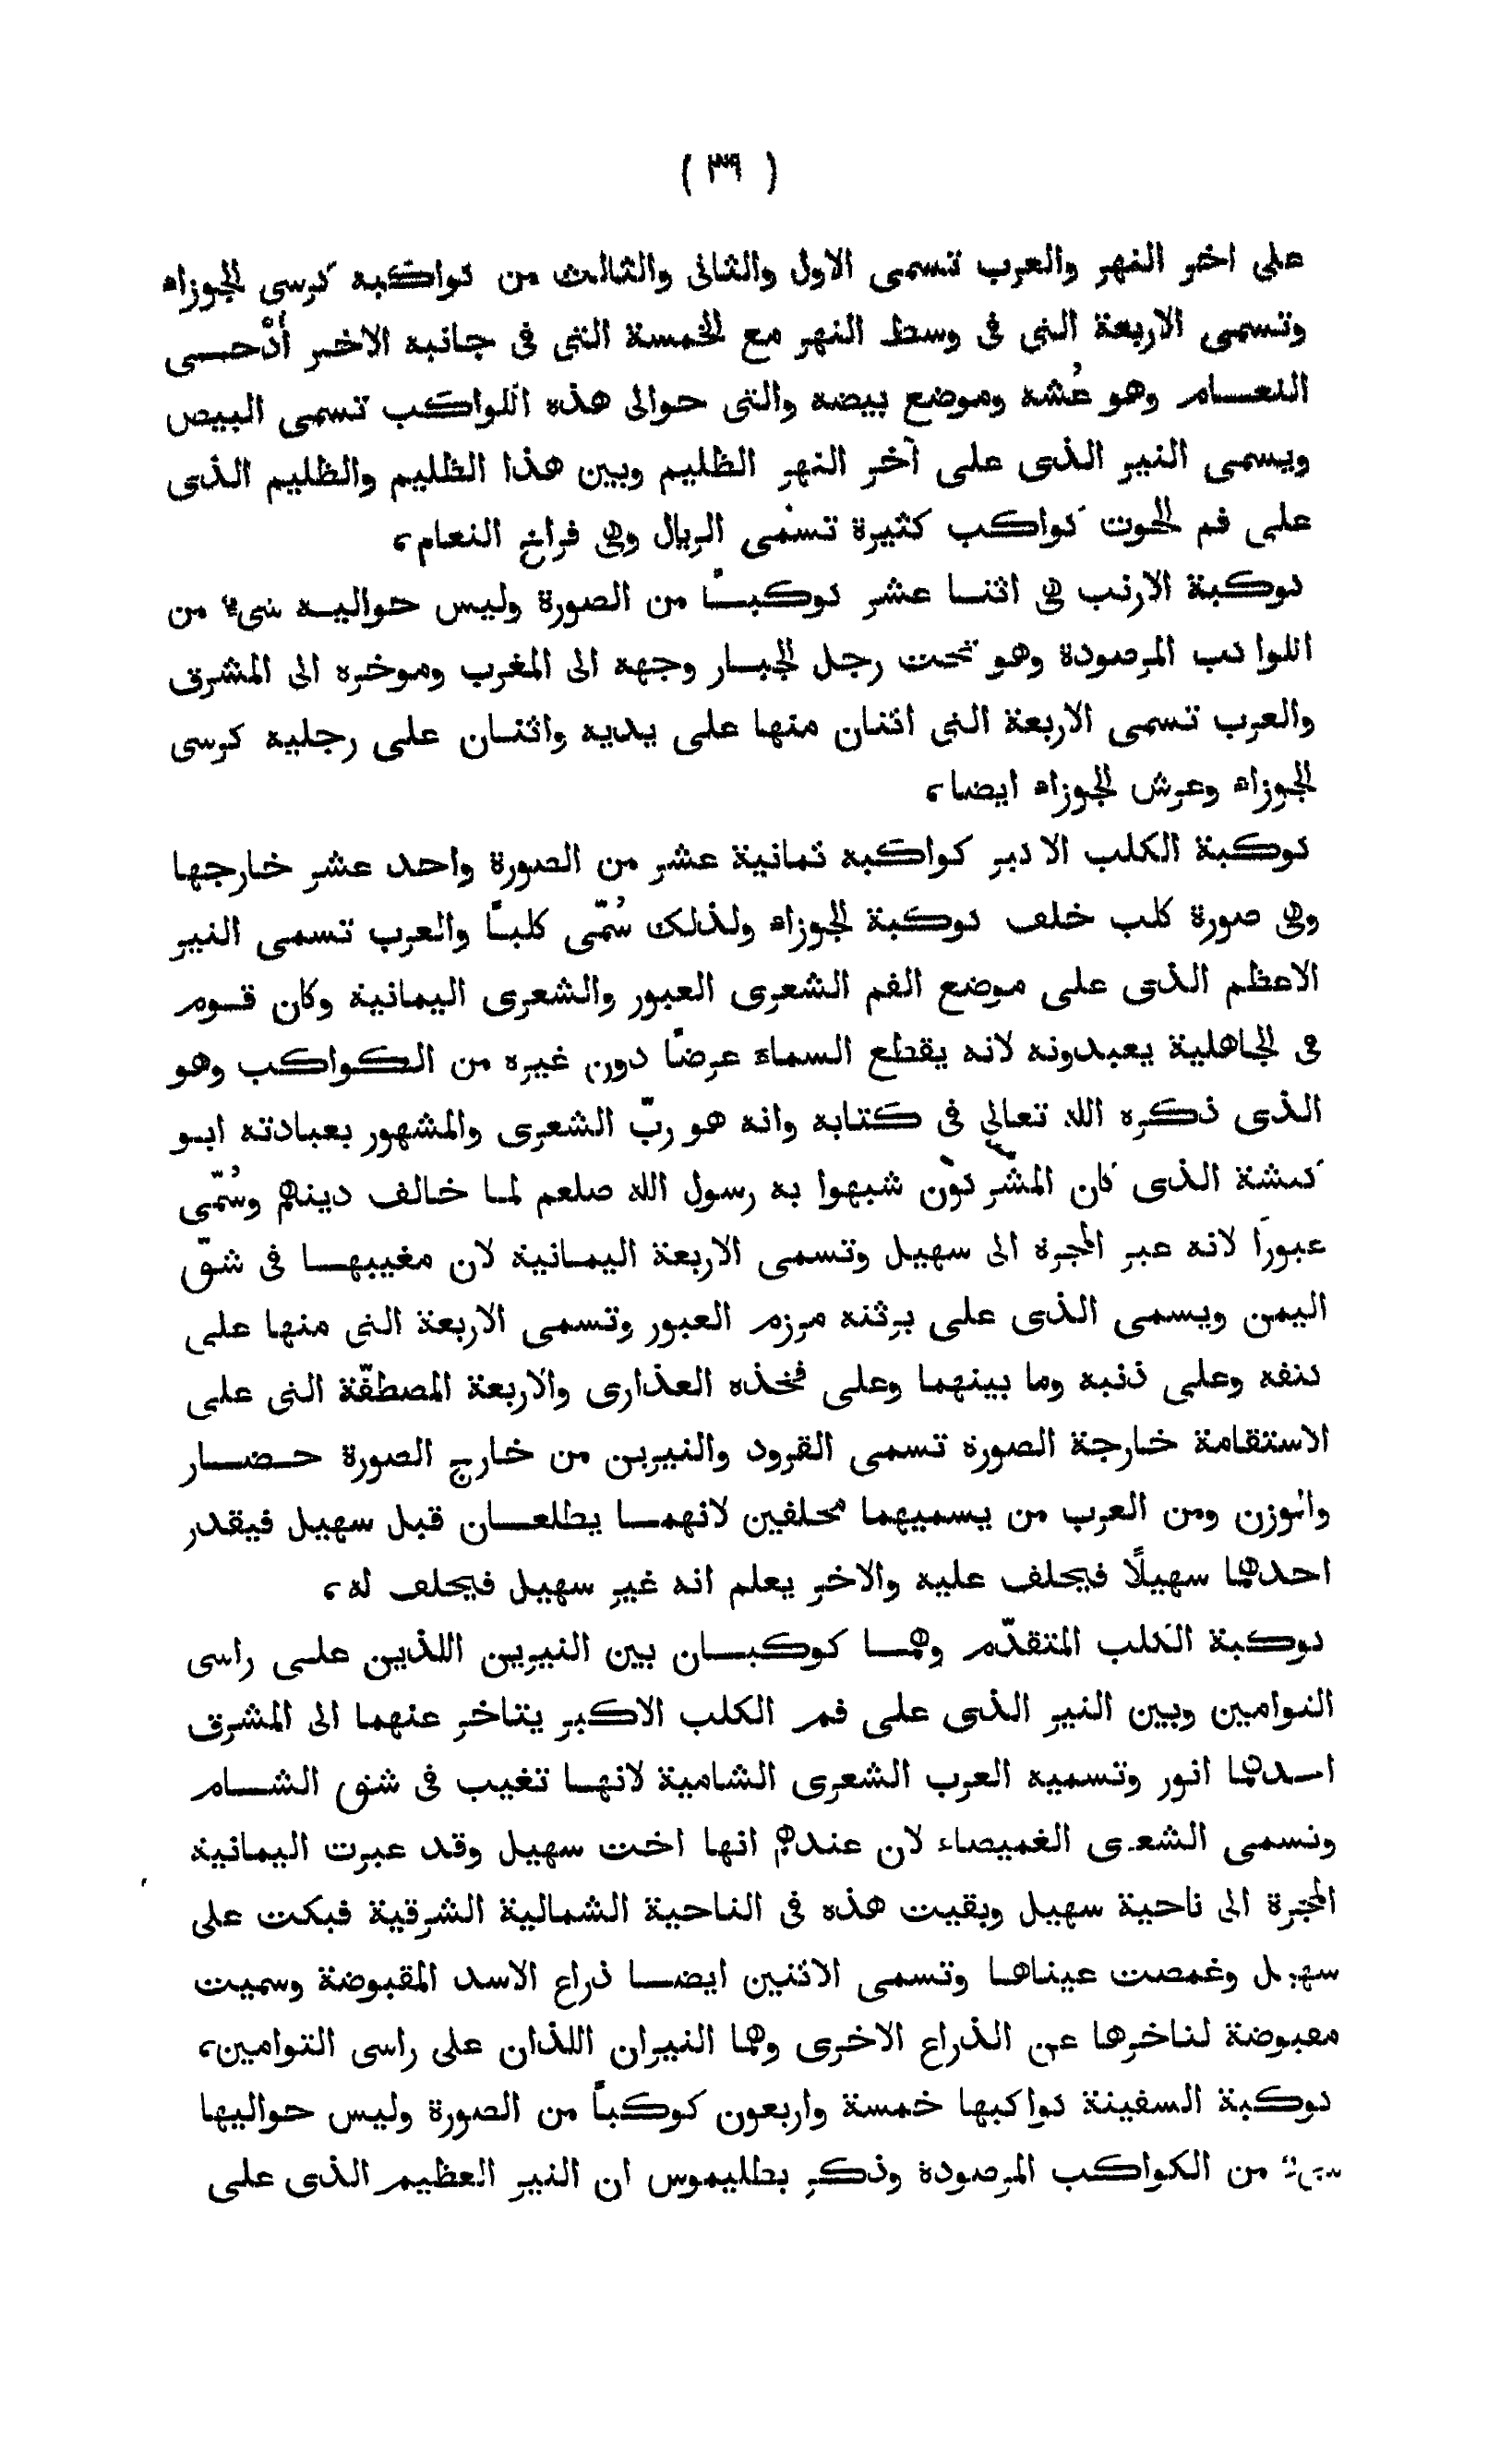 ( ٣٩ )
على اخر النهر والعرب تسمى الاول والثانى والثالث من كواكبه كرسى الجوزاء
وتسمى الاربعة التى فى وسط النهر مع الخمسة التى فى جانبه الاخر أُدْحـــى
النعـــام وهو عُشه وموضع بيضه والتى حوالى هذه الكواكب تسمى البيض
ويسمى النير الذى على آخر النهر الظليم وبين هذا الظليم والظليم الذى
على فم الحوت كواكب كثيرة تسمى الريال وهى فراخ النعام،
كوكبة الارنب هى اثنـا عشر كوكبـًا من الصورة وليس حواليـه شىء من
الكواكب المرصودة وهو تحت رجل الجبـار وجهه الى المغرب وموخره الى المشرق
والعرب تسمى الاربعة التى اثنان منها على يديه واثنـان على رجليه كرسى
الجوزاء وعرش الجوزاء ايضا،
كوكبة الكلب الاكبر كواكبه ثمانية عشر من الصورة واحد عشر خارجها
وهى صورة كلب خلف كوكبة الجوزاء ولذلك سُمّى كلبـًا والعرب تسمى النير
الاعظم الذى على موضع الفم الشعرى العبور والشعرى اليمانية وكان قـوم
فى الجاهلية يعبدونه لانه يقطع السماء عرضًا دون غيره من الكواكب وهو
الذى ذكره الله تعالى فى كتابه وانه هو ربّ الشعرى والمشهور بعبادته ابـو
كبشة الذى كان المشركون شبهوا به رسول الله صلعم لمـا خالف دينهم وسُمّى
عبورًا لانه عبر المجرة الى سهيل وتسمى الاربعة اليمـانية لان مغيبهـا فى شقّ
اليمن ويسمى الذى على برثنه مرزم العبور وتسمى الاربعة التى منها على
كتفه وعلى ذنبه وما بينهما وعلى فخذه العذارى والاربعة المصطفّة التى على
الاستقامة خارجة الصورة تسمى القرود والنيرين من خارج الصورة حـضـار
والوزن ومن العرب من يسميهما محلفين لانهمـا يطلعـان قبل سهيل فيقدر
احدهما سهيلًا فيحلف عليه والاخر يعلم انه غير سهيل فيحلف له،
كوكبة الكلب المتقدّم وهمـا كوكبـان بين النيرين اللذين على راسى
التوامين وبين النير الذى على فم الكلب الاكبر يتاخر عنهما الى المشرق
احدهما انور وتسميه العرب الشعرى الشامية لانهـا تغيب فى شق الشـام
وتسمى الشعرى الغميصاء لان عندهم انها اخت سهيل وقد عبرت اليمانية
المجرة الى ناحية سهيل وبقيت هذه فى الناحية الشمالية الشرقية فبكت على
سهيل وغمصت عيناهـا وتسمى الاثنين ايضـا ذراع الاسد المقبوضة وسميت
مقبوضة لتاخرها عن الذراع الاخرى وهما النيران اللذان على راسى التوامين،
كوكبة السفينة كواكبها خمسة واربعون كوكبًا من الصورة وليس حواليها
شىء من الكواكب المرصودة وذكر بطليموس ان النير العظيم الذى على